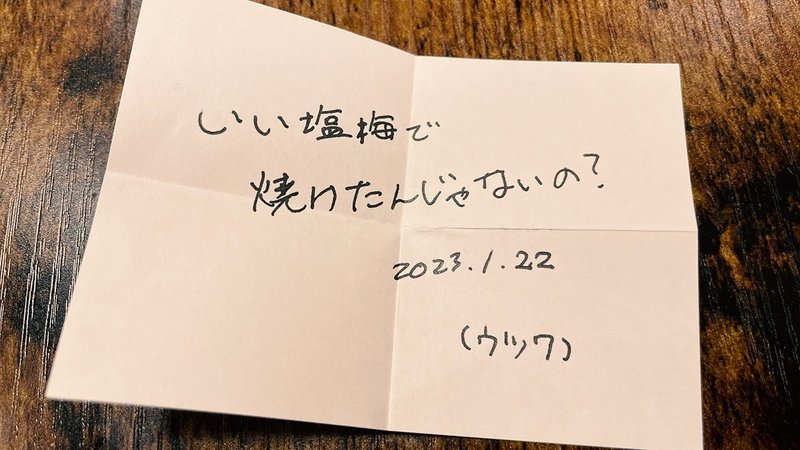 いい塩梅で
焼けたんじゃないの?
2023.1.22
(ウツワ)